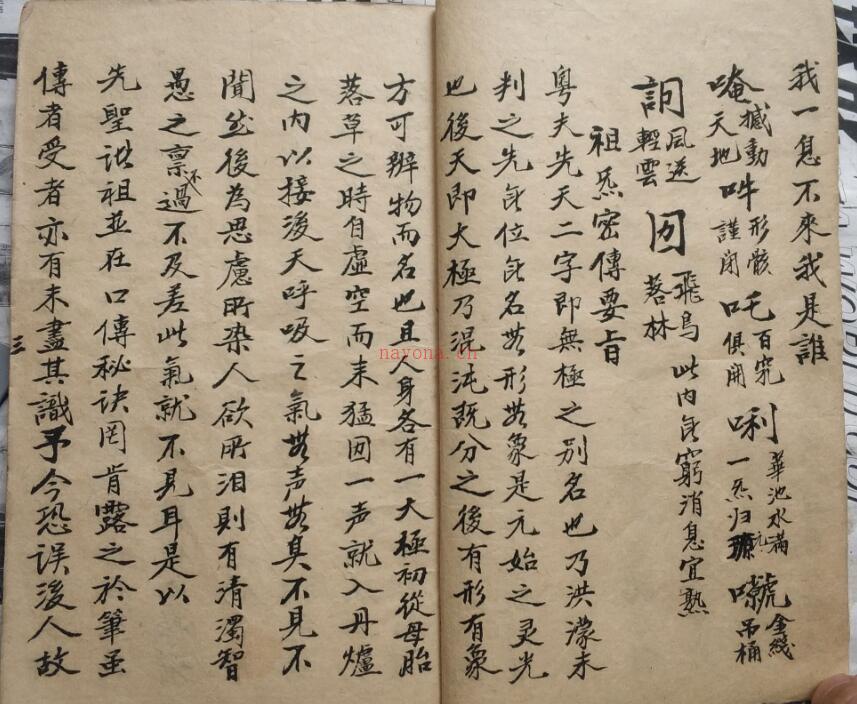 我一息不來我是誰
唵 撼動天地 吽 形骸謹閉 吒 百竅俱開 唎 華池水滿一炁归元 㘁 金綫吊桶
詗 風送輕雲 囙 飛鳥落林 此内𠂻窮消息宜熟
祖炁密傳要旨
粤夫先天二字即無極之别名也乃洪濛未
判之先无位无名無形無象是元始之灵光
也後天即太極乃混沌既分之後有形有象
方可辨物而名也且人身各有一大極初從母胎
落草之時自虛空而来猛囙一声就入丹爐
之内以接後天呼吸之氣無声無臭不見不
聞然後為思慮所染人欲所汨則有清濁智
愚之禀不過不及差此氣就不見耳是以
先聖諸祖並在口傳秘訣罔肯露之於筆至
傳者受者亦有未盡其識予今恐误後人故
三
nayona.cn